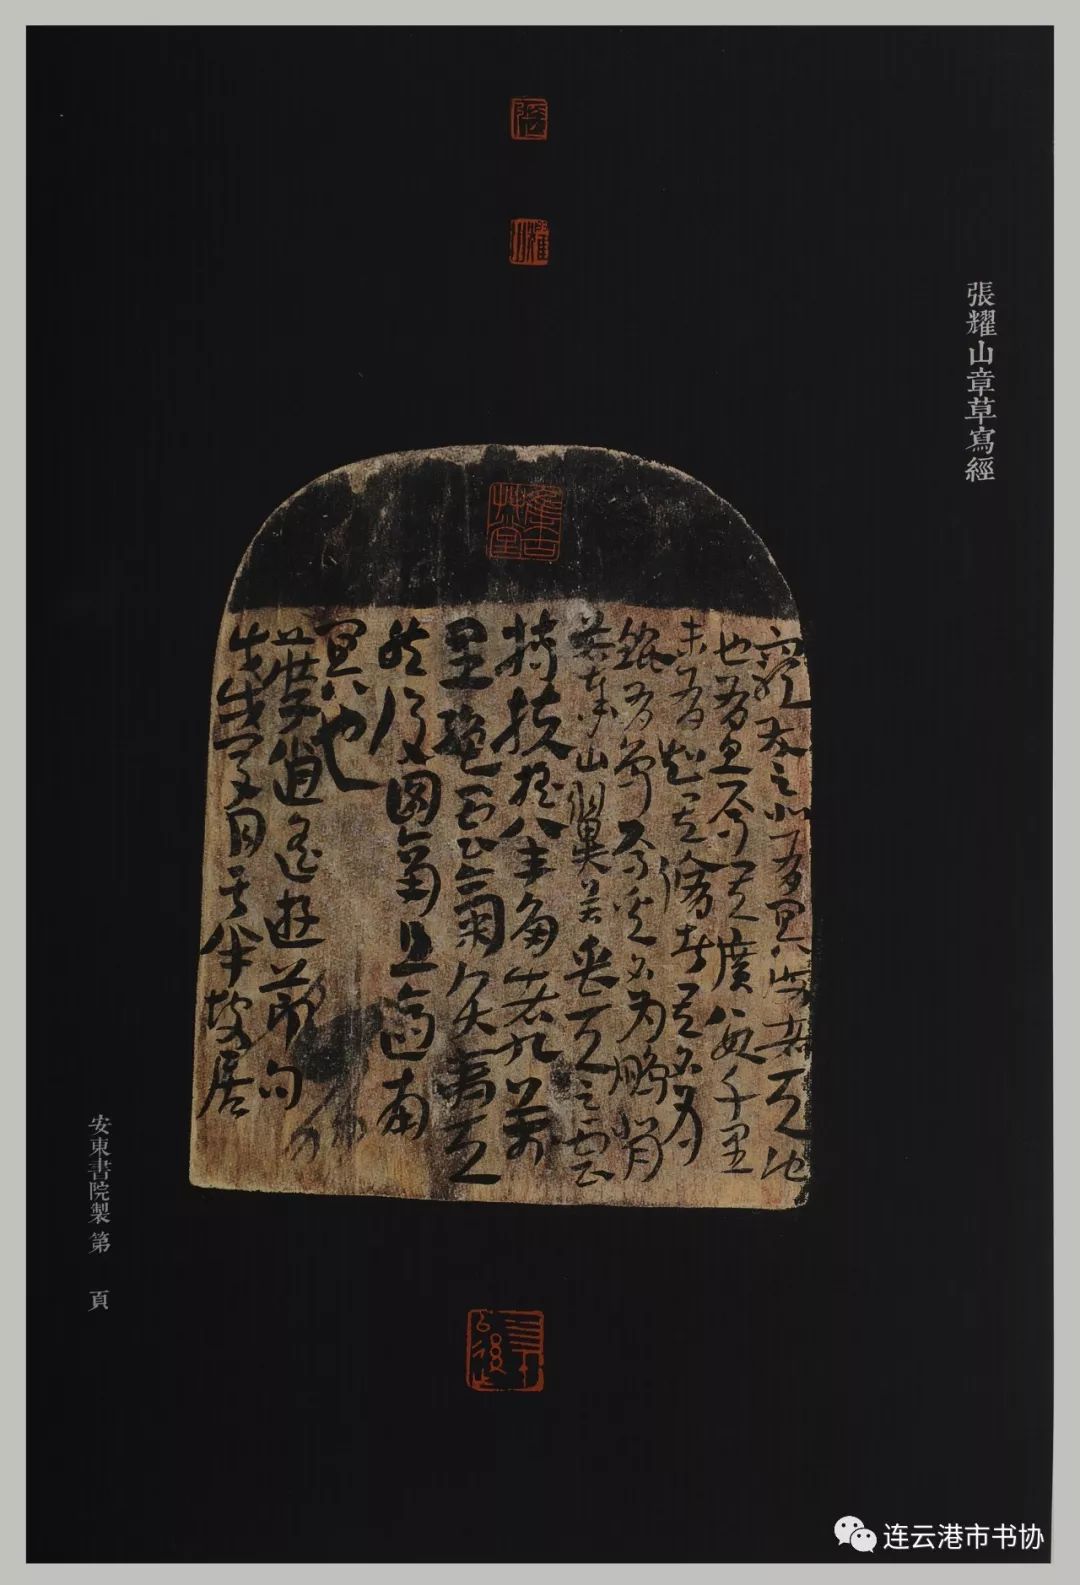 張耀山章草寫經
張
耀
窮髮之北有冥海者天池
也有魚焉其廣數千里
未有知其脩者其名為
鯤有鳥焉其名為鵬背
若泰山翼若垂天之雲
摶扶搖羊角者九萬
里絕雲氣負青天
然後圖南且適南
冥也
莊子逍遙遊節句
戊戌夏月半坡居
安東書院製 第 頁
连云港市书协